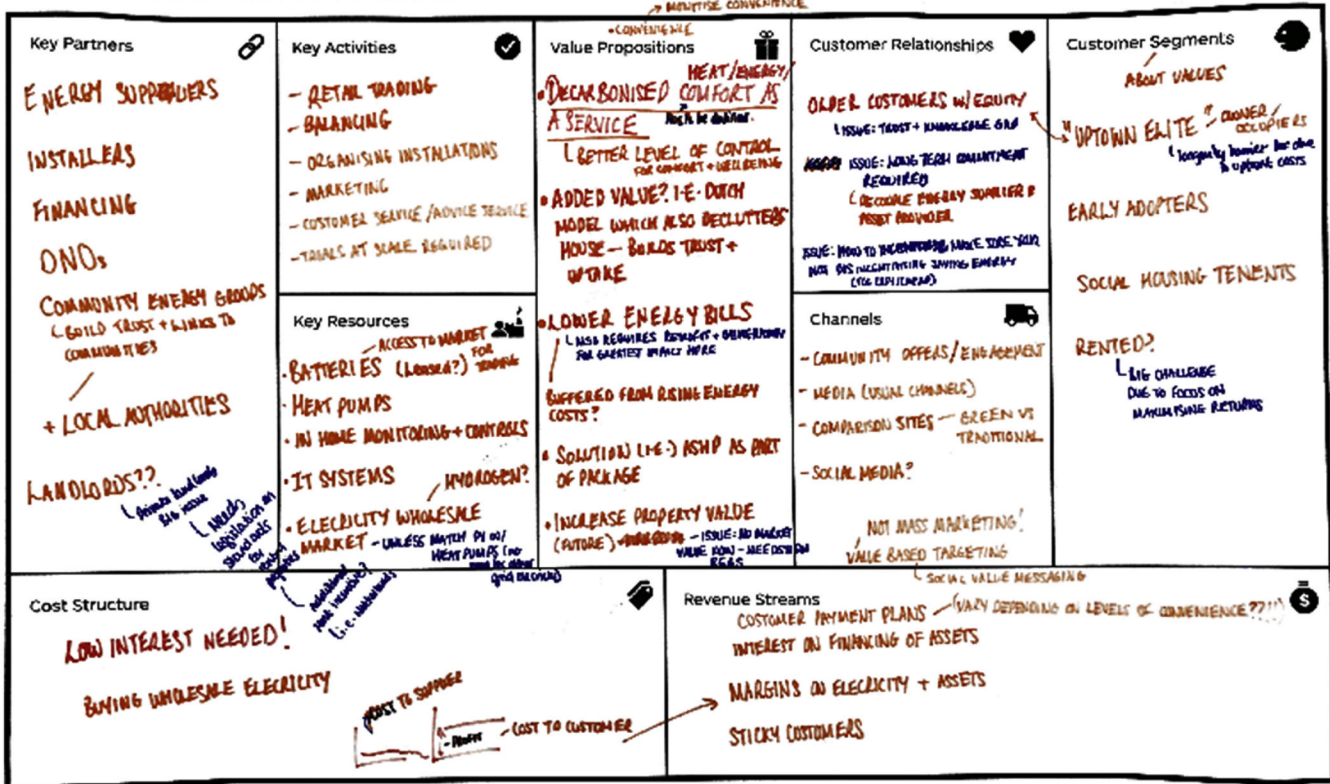 → MONETISE CONVENIENCE
• CONVENIENCE
Key Partners
ENERGY SUPPLIERS
INSTALLERS
FINANCING
DNOs
COMMUNITY ENERGY GROUPS
BUILD TRUST + LINKS TO
COMMUNITIES
+ LOCAL AUTHORITIES
LANDLORDS??
Private landlords
big issue
Needs
legislation on
standards
for
rented
properties
Additional
incentives?
(i.e. Netherlands)
Key Activities
- RETAIL TRADING
- BALANCING
- ORGANISING INSTALLATIONS
- MARKETING
- CUSTOMER SERVICE / ADVICE SERVICE
- TRIALS AT SCALE REQUIRED
Key Resources
ACCESS TO MARKET
FOR
TRADING
• BATTERIES (Leased?)
• HEAT PUMPS
• IN HOME MONITORING + CONTROLS
• IT SYSTEMS
HYDROGEN?
• ELECRICITY WHOLESALE
MARKET - UNLESS MATCH PV w/
HEAT PUMPS (no
Value Propositions
HEAT/ENERGY/
• DECARBONISED COMFORT AS
A SERVICE
BETTER LEVEL OF CONTROL
FOR COMFORT + WELLBEING
• ADDED VALUE? I.E. DUTCH
MODEL WHICH ALSO DECLUTTERS
HOUSE - BUILDS TRUST +
UPTAKE
• LOWER ENERGY BILLS
ALSO REQUIRES RETROFIT +
FOR GREATEST IMPACT HERE
BUFFERED FROM RISING ENERGY
COSTS?
• SOLUTION (I.E.) ASHP AS PART
OF PACKAGE
• INCREASE PROPERTY VALUE
(FUTURE) - ISSUE: NO MARKET
VALUE NOW - NEEDS
REGS
Customer Relationships
OLDER CUSTOMERS W/ EQUITY
ISSUE: TRUST + KNOWLEDGE GAP
ISSUE: LONG TERM COMMITMENT
REQUIRED
DECOUPLE ENERGY SUPPLIER &
ASSET PROVIDER
ISSUE: HOW TO MAKE SURE YOUR
NOT DISINCENTIVISING SAVING ENERGY
Channels
- COMMUNITY OFFERS/ENGAGEMENT
- MEDIA (USUAL CHANNELS)
- COMPARISON SITES - GREEN VS
TRADITIONAL
- SOCIAL MEDIA?
NOT MASS MARKETING!
VALUE BASED TARGETING
SOCIAL VALUE MESSAGING
Customer Segments
ABOUT VALUES
"UPTOWN ELITE" - OWNER/
OCCUPIERS
longevity barrier here due
to upfront costs
EARLY ADOPTERS
SOCIAL HOUSING TENENTS
RENTED?
BIG CHALLENGE
DUE TO FOCUS ON
MAXIMISING RETURNS
Cost Structure
LOW INTEREST NEEDED!
BUYING WHOLESALE ELECRICITY
COST TO SUPPLIER
- PROFIT
- COST TO CUSTOMER
Revenue Streams
CUSTOMER PAYMENT PLANS - (VARY DEPENDING ON LEVELS OF CONVENIENCE??!!)
INTEREST ON FINANCING OF ASSETS
MARGINS ON ELECRICITY + ASSETS
STICKY CUSTOMERS